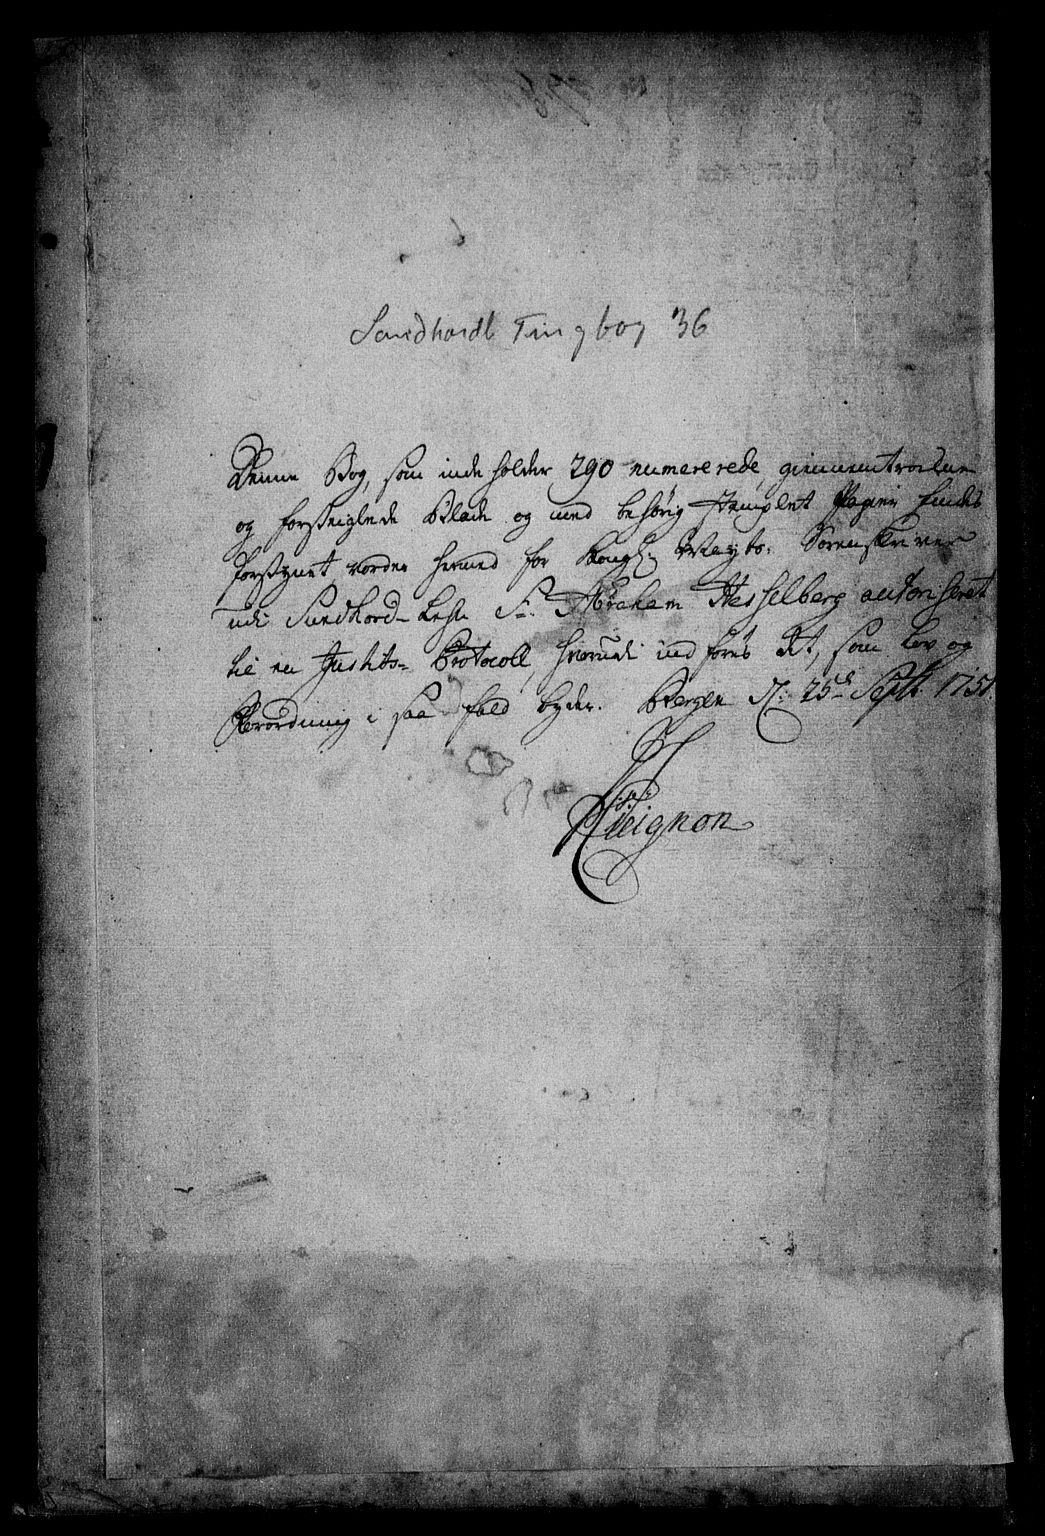 Sundhordl Tingbog 36
Denne Bog, som indeholder 290 numererede, giennemtrodne
og forseiglede Blade og med behørig stemplet Papiir findes
forsÿnet vorder hermed for Kongl: Mayts: Sorenskriver
udi Sundhord-Lehn Sr: Abraham Hesselberg autoriseret
til en Justits-Protocoll, hvorudi indføres Alt, som Lov og
Forordning i saa fald byder. Bergen d: 25de Septb: 1751